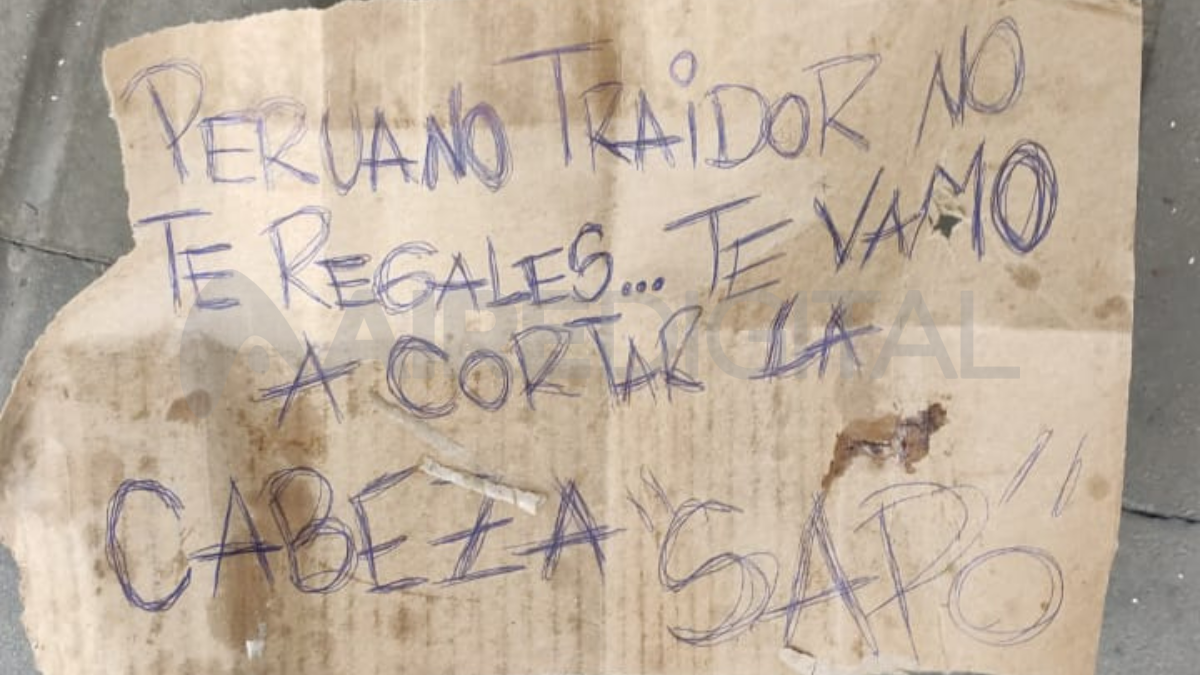 PERUANO TRAiDOR NO
TE REGALES... TE VAMO
A CORTAR LA
CABEZA "SAPO"
AIREDIGITAL